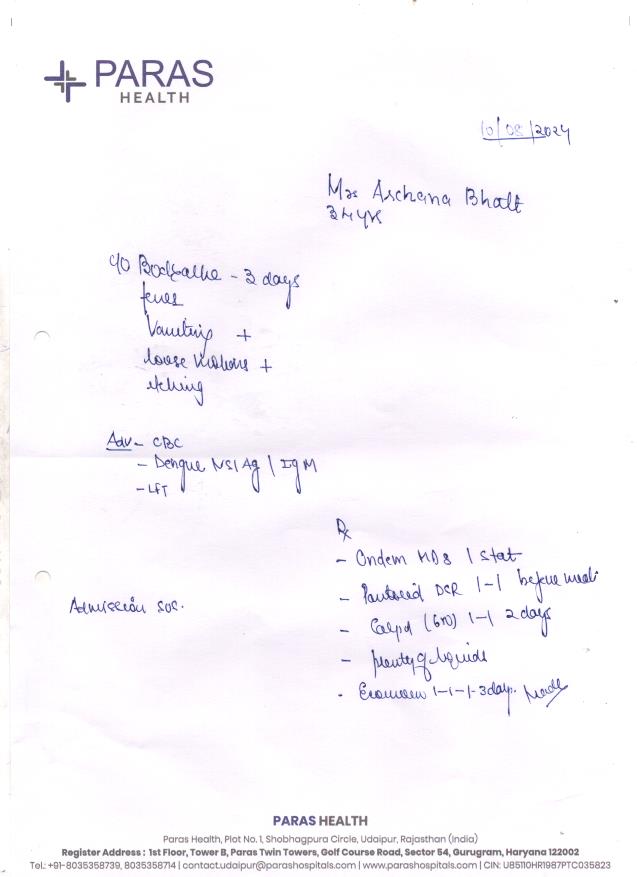 PARAS
HEALTH
10/08/2024
Mrs Archana Bhatt
34 yrs
c/o Bodyache - 3 days
fever
Vomiting +
loose motions +
itching
Adv - CBC
- Dengue NS1 Ag / IgM
- LFT
Rx
- Ondem MD8 1 stat
- Pantocid DSR 1-1 before meals
Admission SOS.
- Calpol (650) 1-1 2 days
- plenty of liquids
- 1-1-1-3 days.
PARAS HEALTH
Paras Health, Plot No. 1, Shobhagpura Circle, Udaipur, Rajasthan (India)
Register Address : 1st Floor, Tower B, Paras Twin Towers, Golf Course Road, Sector 54, Gurugram, Haryana 122002
Tel.: +91-8035358739, 8035358714 | contact.udaipur@parashospitals.com | www.parashospitals.com | CIN: U85110HR1987PTC035823